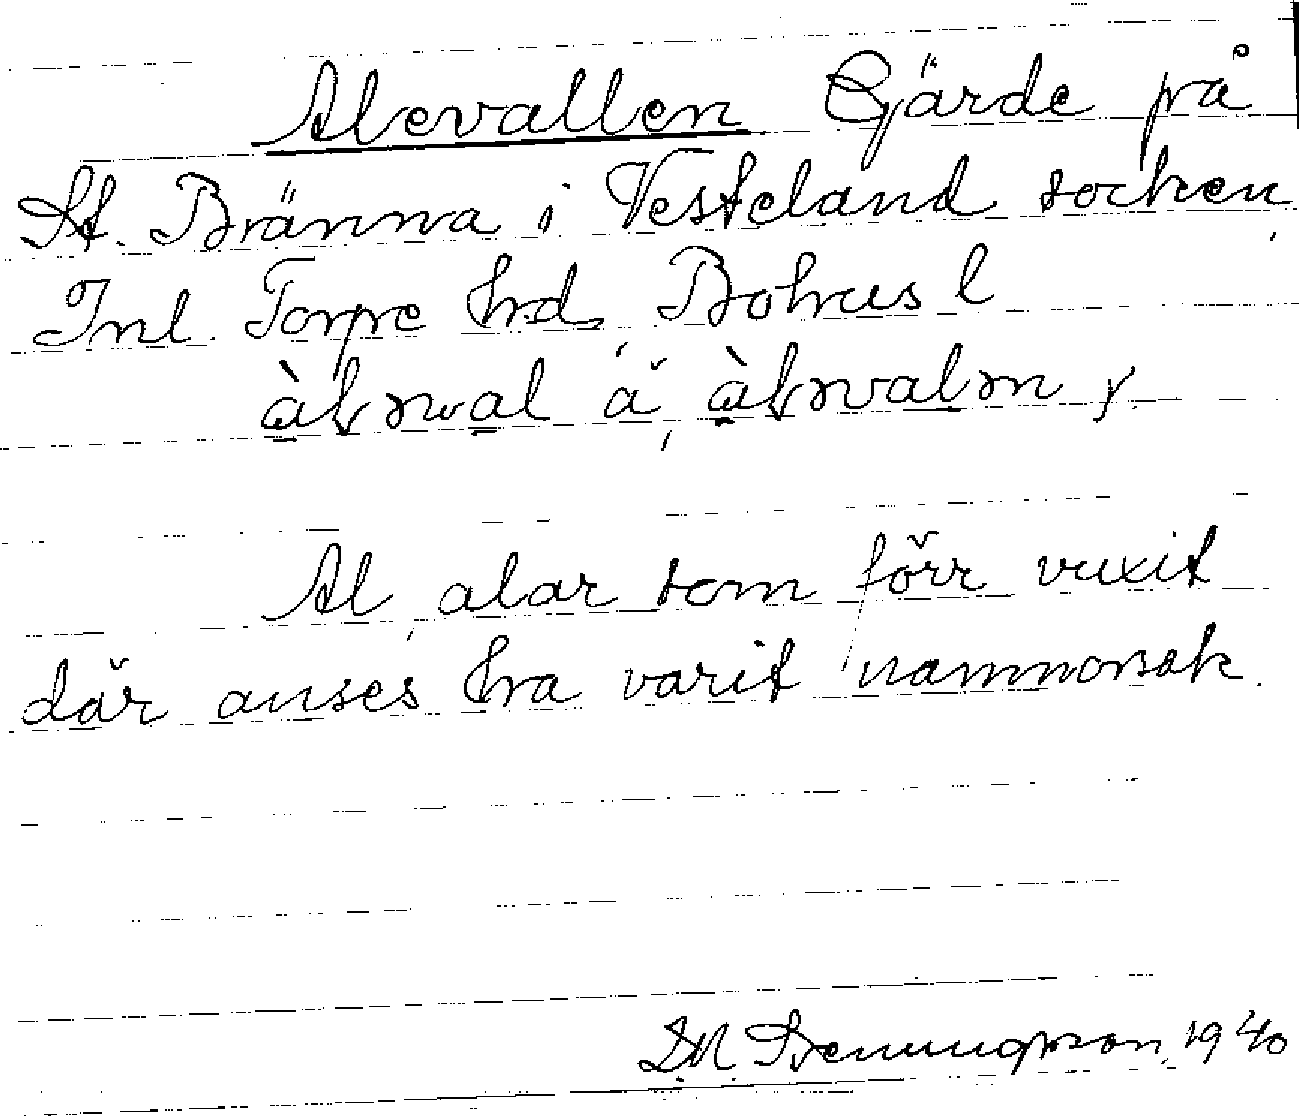 Alevallen Gärde på
St. Bränna i Vesteland socken,
Inl Torpe hrd, Bohus l
àlnwal å, àlnvaln y.
Al, alar som förr vuxit
där anses ha varit namnorsak.
1940